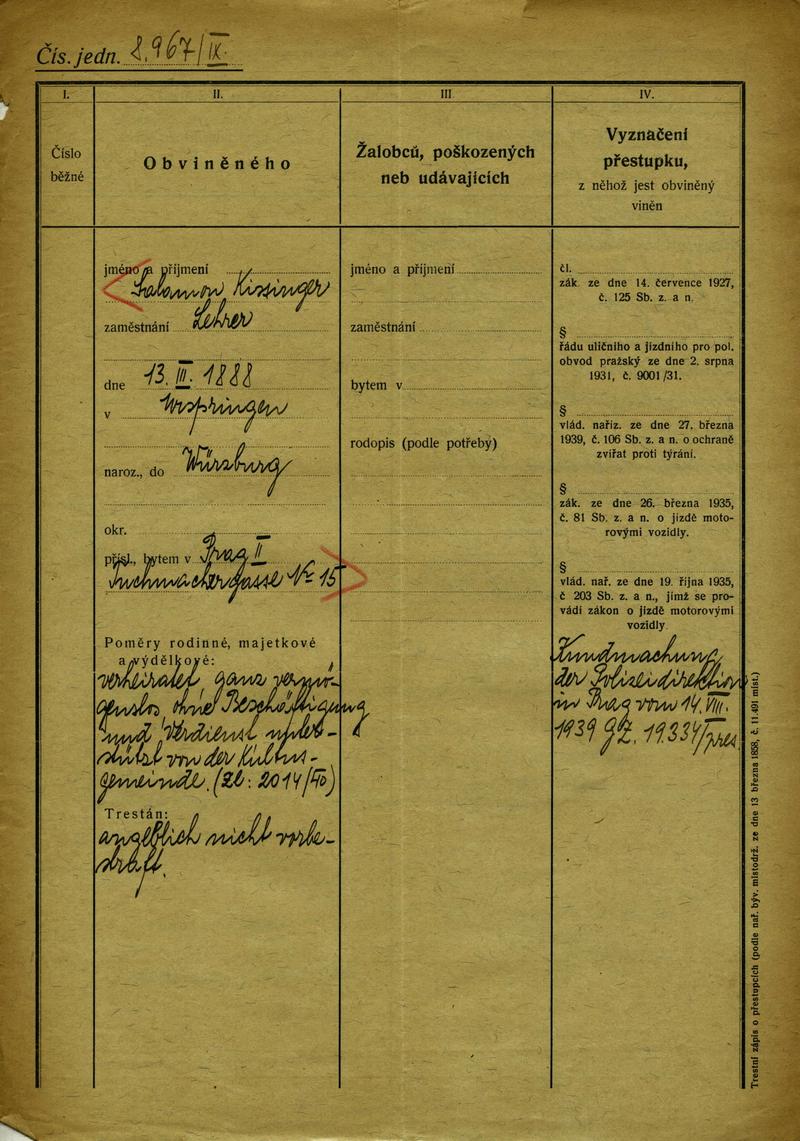 Čís. jedn. 8.967/IX.
I.
Číslo
běžné
II.
Obviněného
III.
Žalobců, poškozených
neb udávajících
IV.
Vyznačení
přestupku,
z něhož jest obviněný
viněn
jméno a příjmení
Salomon Kissinger
zaměstnání Lehrer
dne 13. III. 1888
v
naroz., do Würzburg
okr.
přísl., bytem v Prag II
No 15
Poměry rodinné, majetkové
a výdělkové:
verheiratet, ganz vermö-
genslos, ohne Beschäftigung
und Verdienst, unter-
stützt von der Kultus-
gemeinde. (Zl: 2014/40)
Trestán:
angeblich nicht vorbe-
straft.
jméno a příjmení
zaměstnání
bytem v
rodopis (podle potřeby)
čl.
zák. ze dne 14. července 1927,
č. 125 Sb. z. a n.
§
řádu uličního a jízdního pro pol.
obvod pražský ze dne 2. srpna
1931, č. 9001/31.
§
vlád. naříz. ze dne 27. března
1939, č. 106 Sb. z. a n. o ochraně
zvířat proti týrání.
§
zák. ze dne 26. března 1935,
č. 81 Sb. z. a n. o jízdě moto-
rovými vozidly.
§
vlád. nař. ze dne 19. října 1935,
č 203 Sb. z. a n., jímž se pro-
vádí zákon o jízdě motorovými
vozidly.
Kundmachung
der Polizeidirektion
in Prag vom 14. VIII.
1939 GZ. 19334/pres.
Trestní zápis o přestupcích (podle nař. býv. místodrž. ze dne 13 března 1858, č. 11.491 míst.)